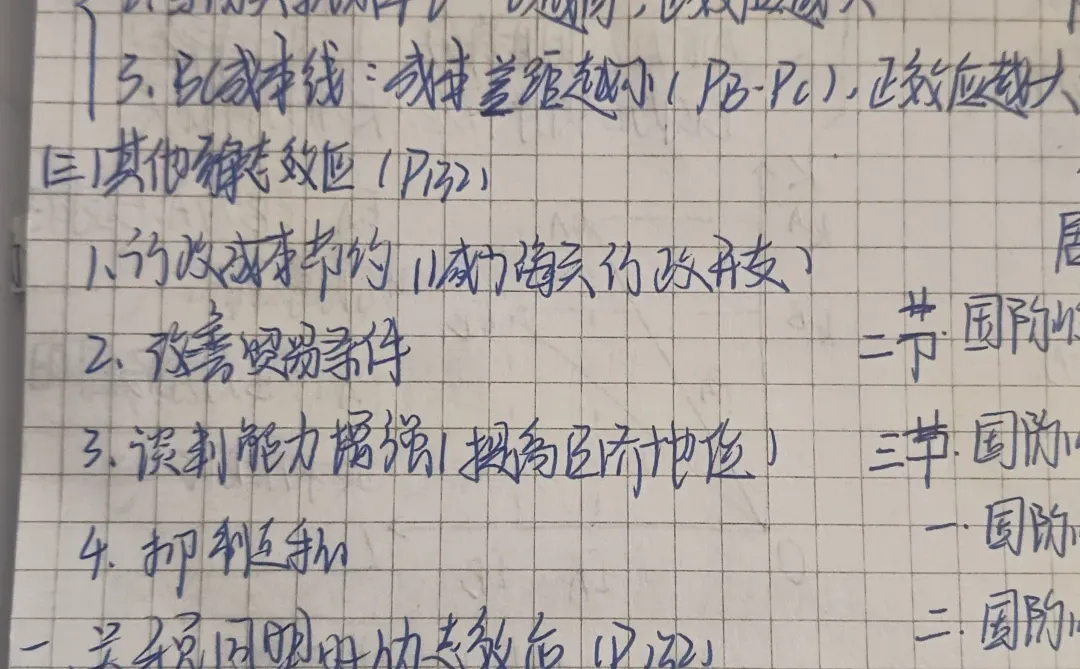 3. BC成本线：成本差距越小(PB-PC)，正效应越大
(三)其他静态效应(P132)
1、行政成本节约(减少海关行政开支)
2、改善贸易条件
3、谈判能力增强(提高经济地位)
4、抑制走私
关税同盟的动态效应(P132)
二节. 国际
三节. 国际
一. 国际
二. 国际